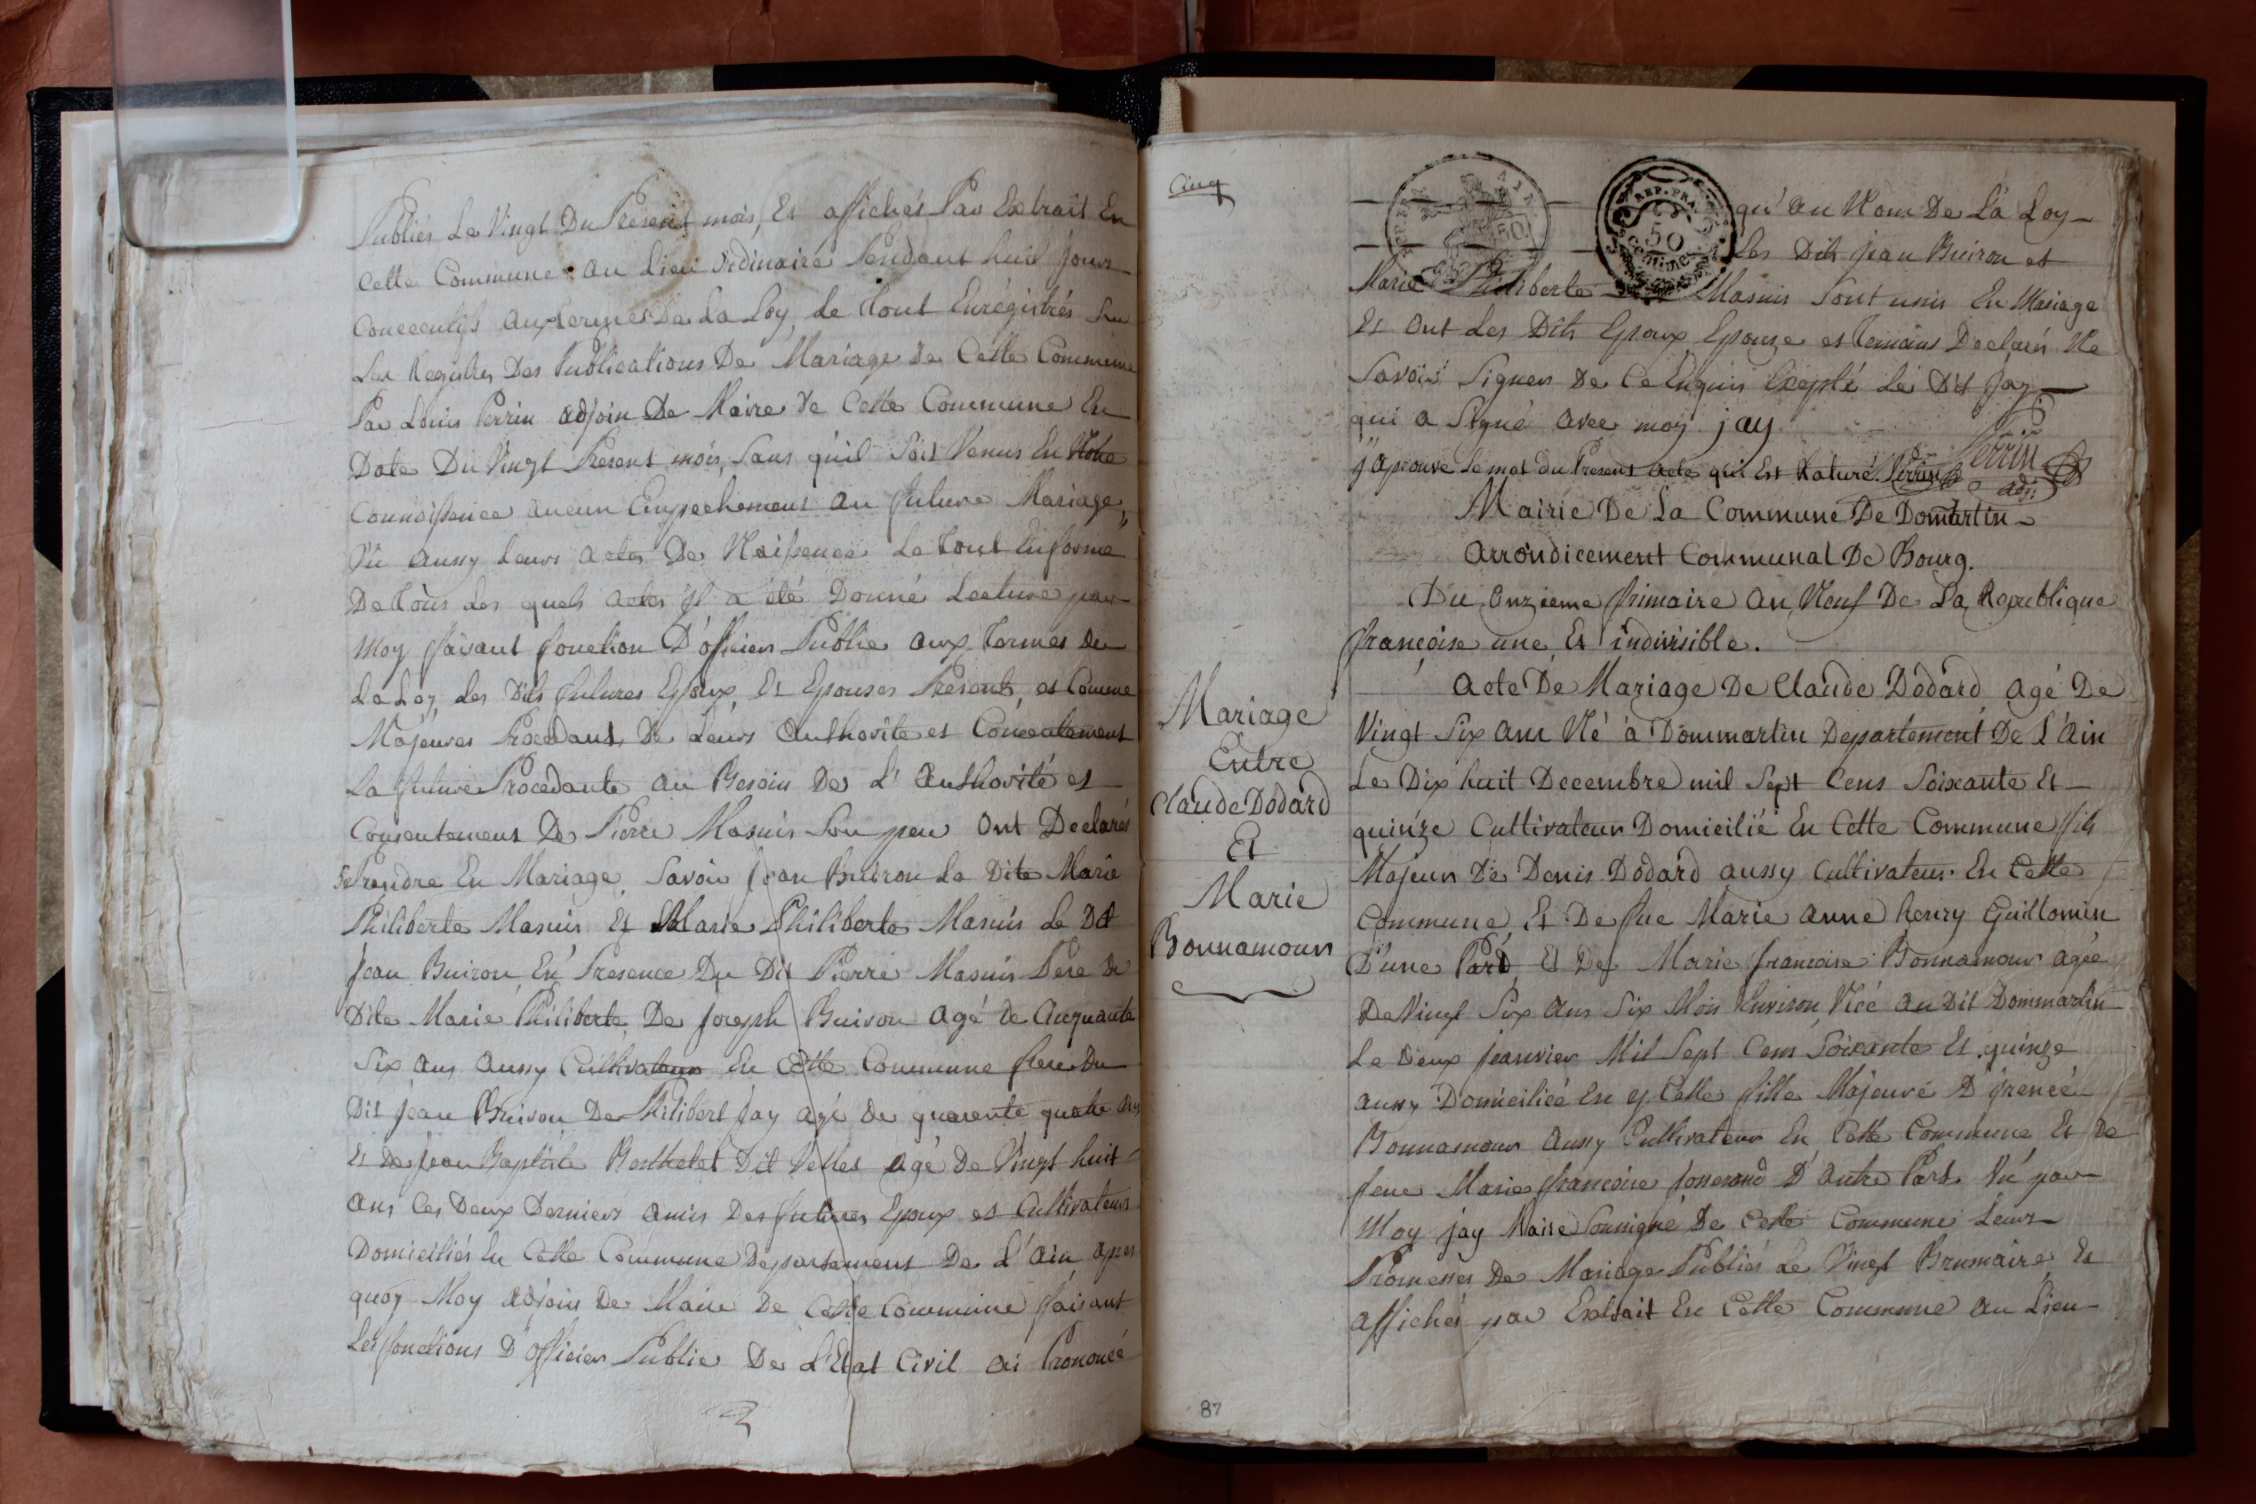 Publiés Le Vingt Du Présent mois, Et affichés Par Extrait En
Cette Commune au Lieu ordinaire Pendant huit Jours
Conceculifs aux termes De La Loy, Le tout Enrégistrés Sur
Les Registres Des Publications De Mariage de Cette Commune
Par Louis Perrin adjoin De Maire de Cette Commune En
Date Du Vingt Present mois, Sans qu'il Soit Venus En Notre
Connoissence aucun Empechement au future Mariage,
Vû aussy Leurs actes De Naissence Le tout Enforme
De tous Les quels actes Il a été Donné Lecture par
Moy faisant fonction D'officier Public aux termes De
La Loy, Les Dits futures Epoux, Et Epouses Présents, et Comme
Majeures Procedant, De Leurs Authorité et Concentement
La future Procedante au Besoin De L'Authorité et
Consentement De Pierre Masuis Son pere Ont Declarés
Se Prendre En Mariage, Savoir Jean Buiron La Dite Marie
Philiberte Masuis Et Marie Philiberte Masuis Le Dit
Jean Buiron, En Presence Du Dit Pierre Masuis Pere De
Dite Marie Philiberte, De Joseph Buiron agé de Cinquante
Six ans aussy Cultivateur En Cette Commune frere Du
Dit Jean Buiron De Philibert Jay agé de quarente quatre ans
Et De Jean Baptiste Berthelet Dit Velles agé De Vingt huit
ans Ces Deux Derniers amis Des futures Epoux et Cultivateurs
Domiciliés En Cette Commune Departement De L'ain, apres
quoy Moy adjoin De Maire De Cette Commune faisant
Les fonctions D'officier Public De L'Etat Civil ai Prononcé
Cinq
REP. FRA.
50
CENTIMES
qu'au Nom De La Loy
Les Dits Jean Buiron et
Marie Philiberte Masuis Sont unis En Mariage
Et Ont Les Dits Epoux Epouse et temoins Declarés Ne
Savoir Signer De Ce Enquis Excepté Le Dit Jay
qui a Signé avec moy jay
Perrin
adj.
J'aprouve Le mot du Present acte qui Est Raturé. Perrin
Mairie De La Commune De Domartin
Arrondicement Communal De Bourg.
Du Onzieme frimaire an Neuf De La Republique
françoise une Et indivisible.
Mariage
Entre
Claude Dodard
Et
Marie
Bonnamour
Acte De Mariage De Claude Dodard agé De
Vingt Six ans Né à Dommartin Departement De L'Ain
Le Dix huit Decembre mil Sept Cens Soixante Et
quinze Cultivateur Domicilié En Cette Commune fils
Majeur De Denis Dodard aussy Cultivateur En Cette
Commune, Et De fue Marie Anne henry Guillomin
D'une Pard, Et De Marie françoise Bonnamour agée
De Vingt Six ans Six Mois Environ, Née au Dit Dommartin
Le Deux Jeanvier Mil Sept Cens Soixante Et quinze
aussy Domiciliée En y Celle fille Majeure
Bonnamour aussy Cultivateur En Cette Commune Et De
feue Marie françoise Josserand D'autre Part. Vû par
Moy jay Maire Soussigné De Cette Commune Leurs
Promesses De Mariage Publiés Le Vingt Brumaire Et
affichés par Extrait En Cette Commune au Lieu
87